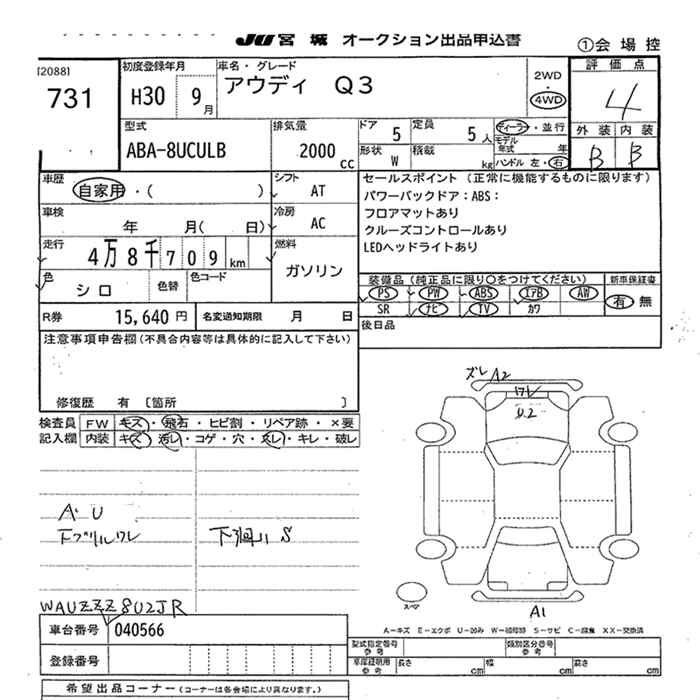 JU 宮城 オークション出品申込書
①会場控
[2088]
731
初度登録年月
H30 9月
車名・グレード
アウディ Q3
2WD
4WD
評価点
4
外装 内装
B B
型式
ABA-8UCULB
排気量
2000 cc
ドア 5
定員 5人
形状 W
積載 kg
ディーラー・並行
モデル年式 年
ハンドル 左・右
車歴
自家用・( )
シフト
AT
車検
年 月( 日)
冷房
AC
走行
4万8千709km
燃料
ガソリン
色
シロ
色替
色コード
R券 15,640円
名変通知期限 月 日
セールスポイント (正常に機能するものに限ります)
パワーバックドア:ABS:
フロアマットあり
クルーズコントロールあり
LEDヘッドライトあり
装備品 (純正品に限り○をつけてください)
新車保証書
PS PW ABS エアB AW
有 無
SR ナビ TV カワ
後日品
注意事項申告欄 (不具合内容等は具体的に記入して下さい)
修復歴 有 〔箇所 〕
検査員記入欄
FW キズ・飛石・ヒビ割・リペア跡・×要
内装 キズ・汚レ・コゲ・穴・スレ・キレ・破レ
ズレ A2
ワレ
U2
A・U
下グリルワレ
下廻り S
スペア
A1
WAUZZZ8U2JR
車台番号 040566
登録番号
A-キズ E-エクボ U-凹み W-補修跡 S-サビ C-腐食 XX-交換済
型式指定番号 参考
類別区分番号 参考
車庫証明用 参考
長さ cm
幅 cm
高さ cm
希望出品コーナー (コーナーは各会場により異なります。)